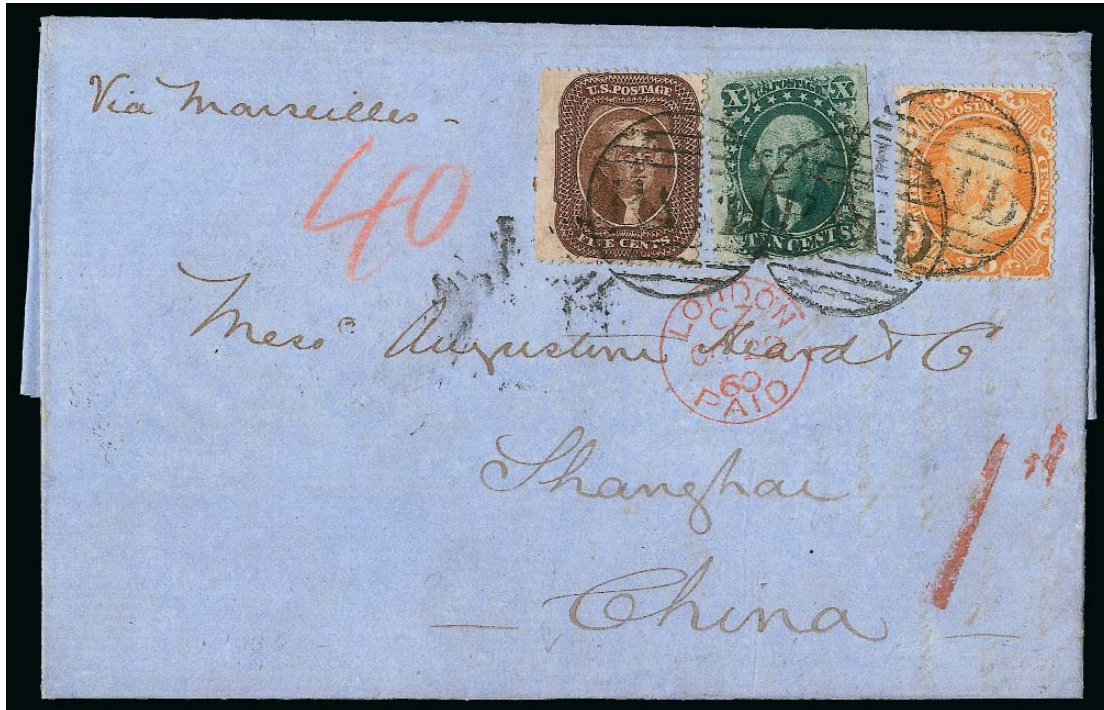 Via Marseilles -
40
U.S. POSTAGE
FIVE CENTS
X U.S. POSTAGE X
TEN CENTS
POSTAGE
CENTS
30
LONDON
CZ
60
PAID
Mess Augustine Heard & Co
Shanghai
China
1